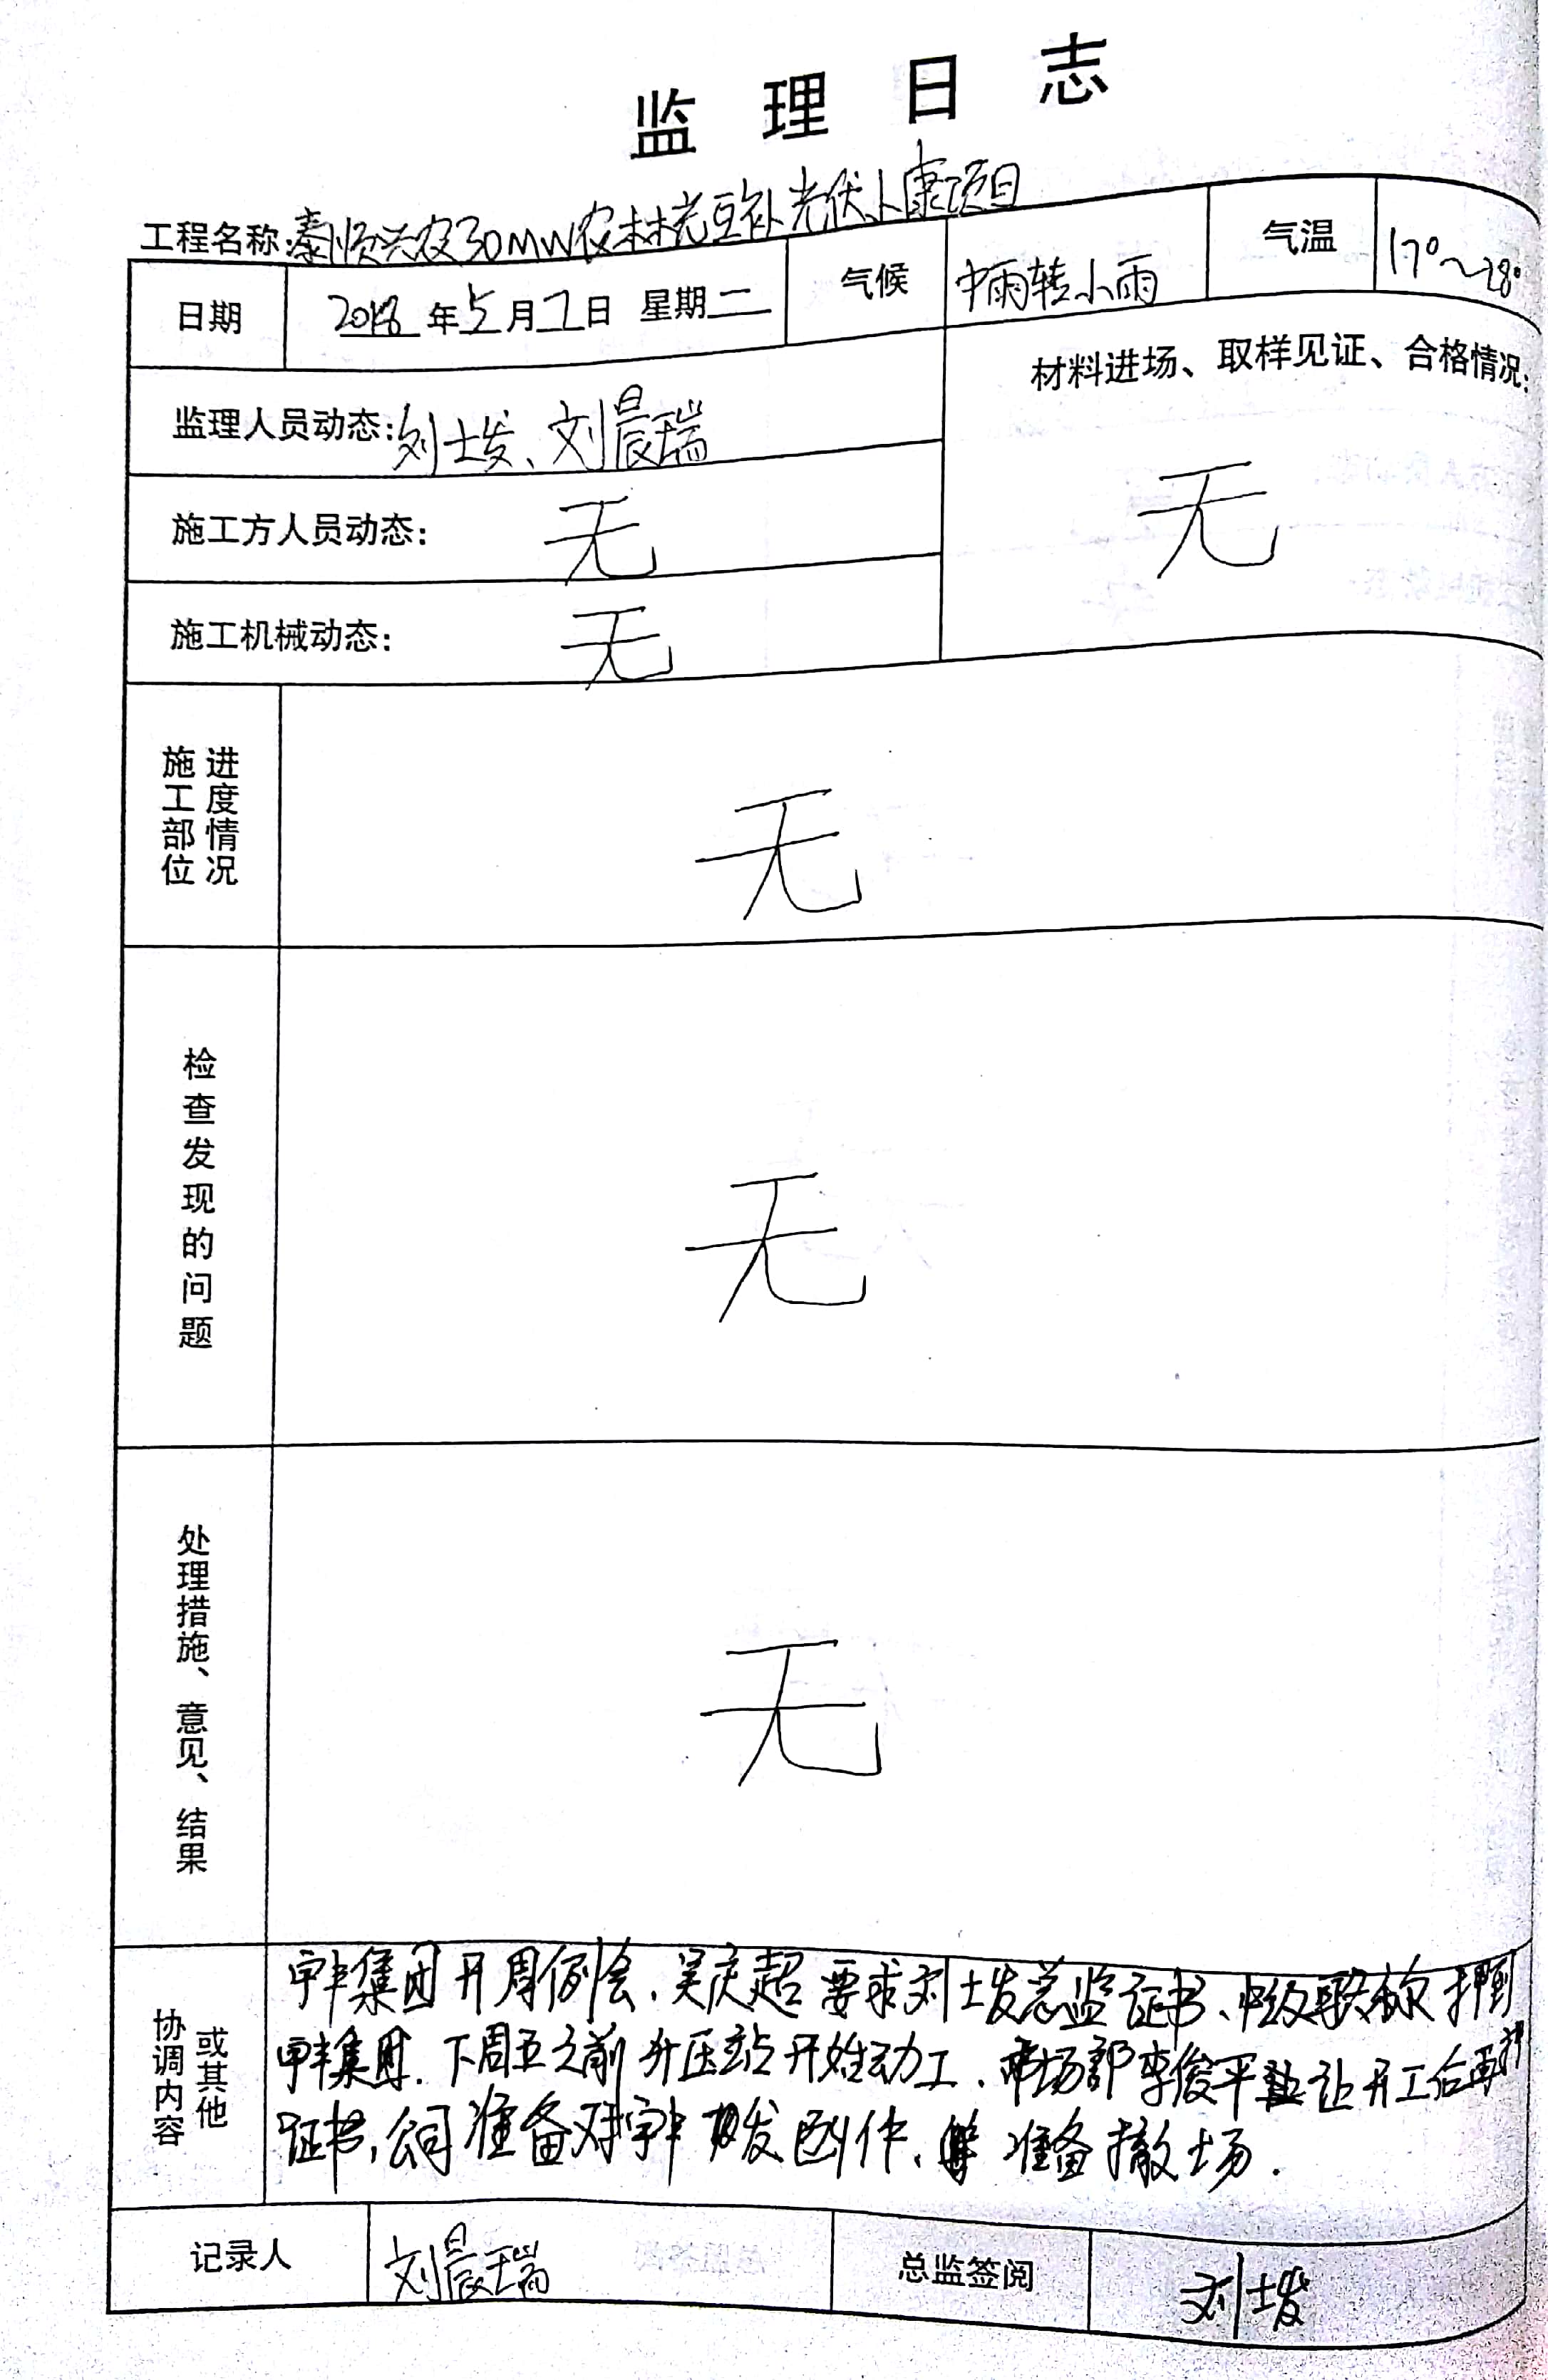 监理日志
工程名称:泰顺兴农30MW农林光互补光伏小康项目
日期 2018年5月1日 星期二 气候 中雨转小雨 气温 17°~28°
监理人员动态:刘士发、刘晨瑞
材料进场、取样见证、合格情况:
无
施工方人员动态: 无
施工机械动态: 无
施工部位
进度情况
无
检查发现的问题
无
处理措施、意见、结果
无
协调内容
或其他
集团开周例会,吴庆超要求刘士发总监证书、中级职称押到
集团.下周五之前升压站开始动工、市场部李俊平让开工后再押
证书,公司准备对发函件、准备撤场.
记录人 刘晨瑞 总监签阅 刘士发